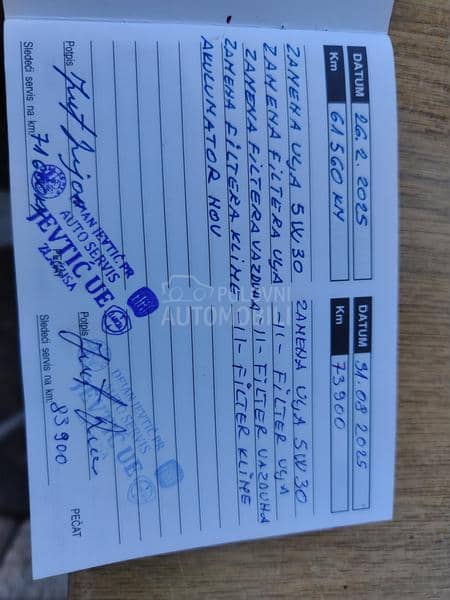 DATUM 26.2.2025
Km 61 560 KM
ZAMENA ULJA 5W30
ZAMENA FILTERA ULJA
ZAMENA FILTERA VAZDUHA
ZAMENA FILTERA KLIME
AKULUMATOR NOV
Potpis
DEJAN JEVTIĆ PR
AUTO SERVIS
JEVTIĆ UE
Sledeći servis na km:
DATUM 31.08 2025
Km 73900
ZAMENA ULJA 5W30
-11- FILTER ULJA
-11- FILTER VAZDUHA
-11- FILTER KLIME
Potpis
DEJAN JEVTIĆ PR
AUTO SERVIS
JEVTIĆ UE
Sledeći servis na km: 83900
PEČAT
POLOVNI
AUTOMOBILI